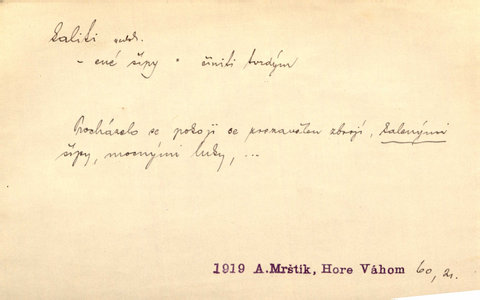 kaliti nedok.
- ené šípy * činiti tvrdým
Procházelo se pokojí se kosmavěton zbrojí, kalenými
šípy, mocnými luky, ...
1919 A.Mrštík, Hore Váhom 60, 21.